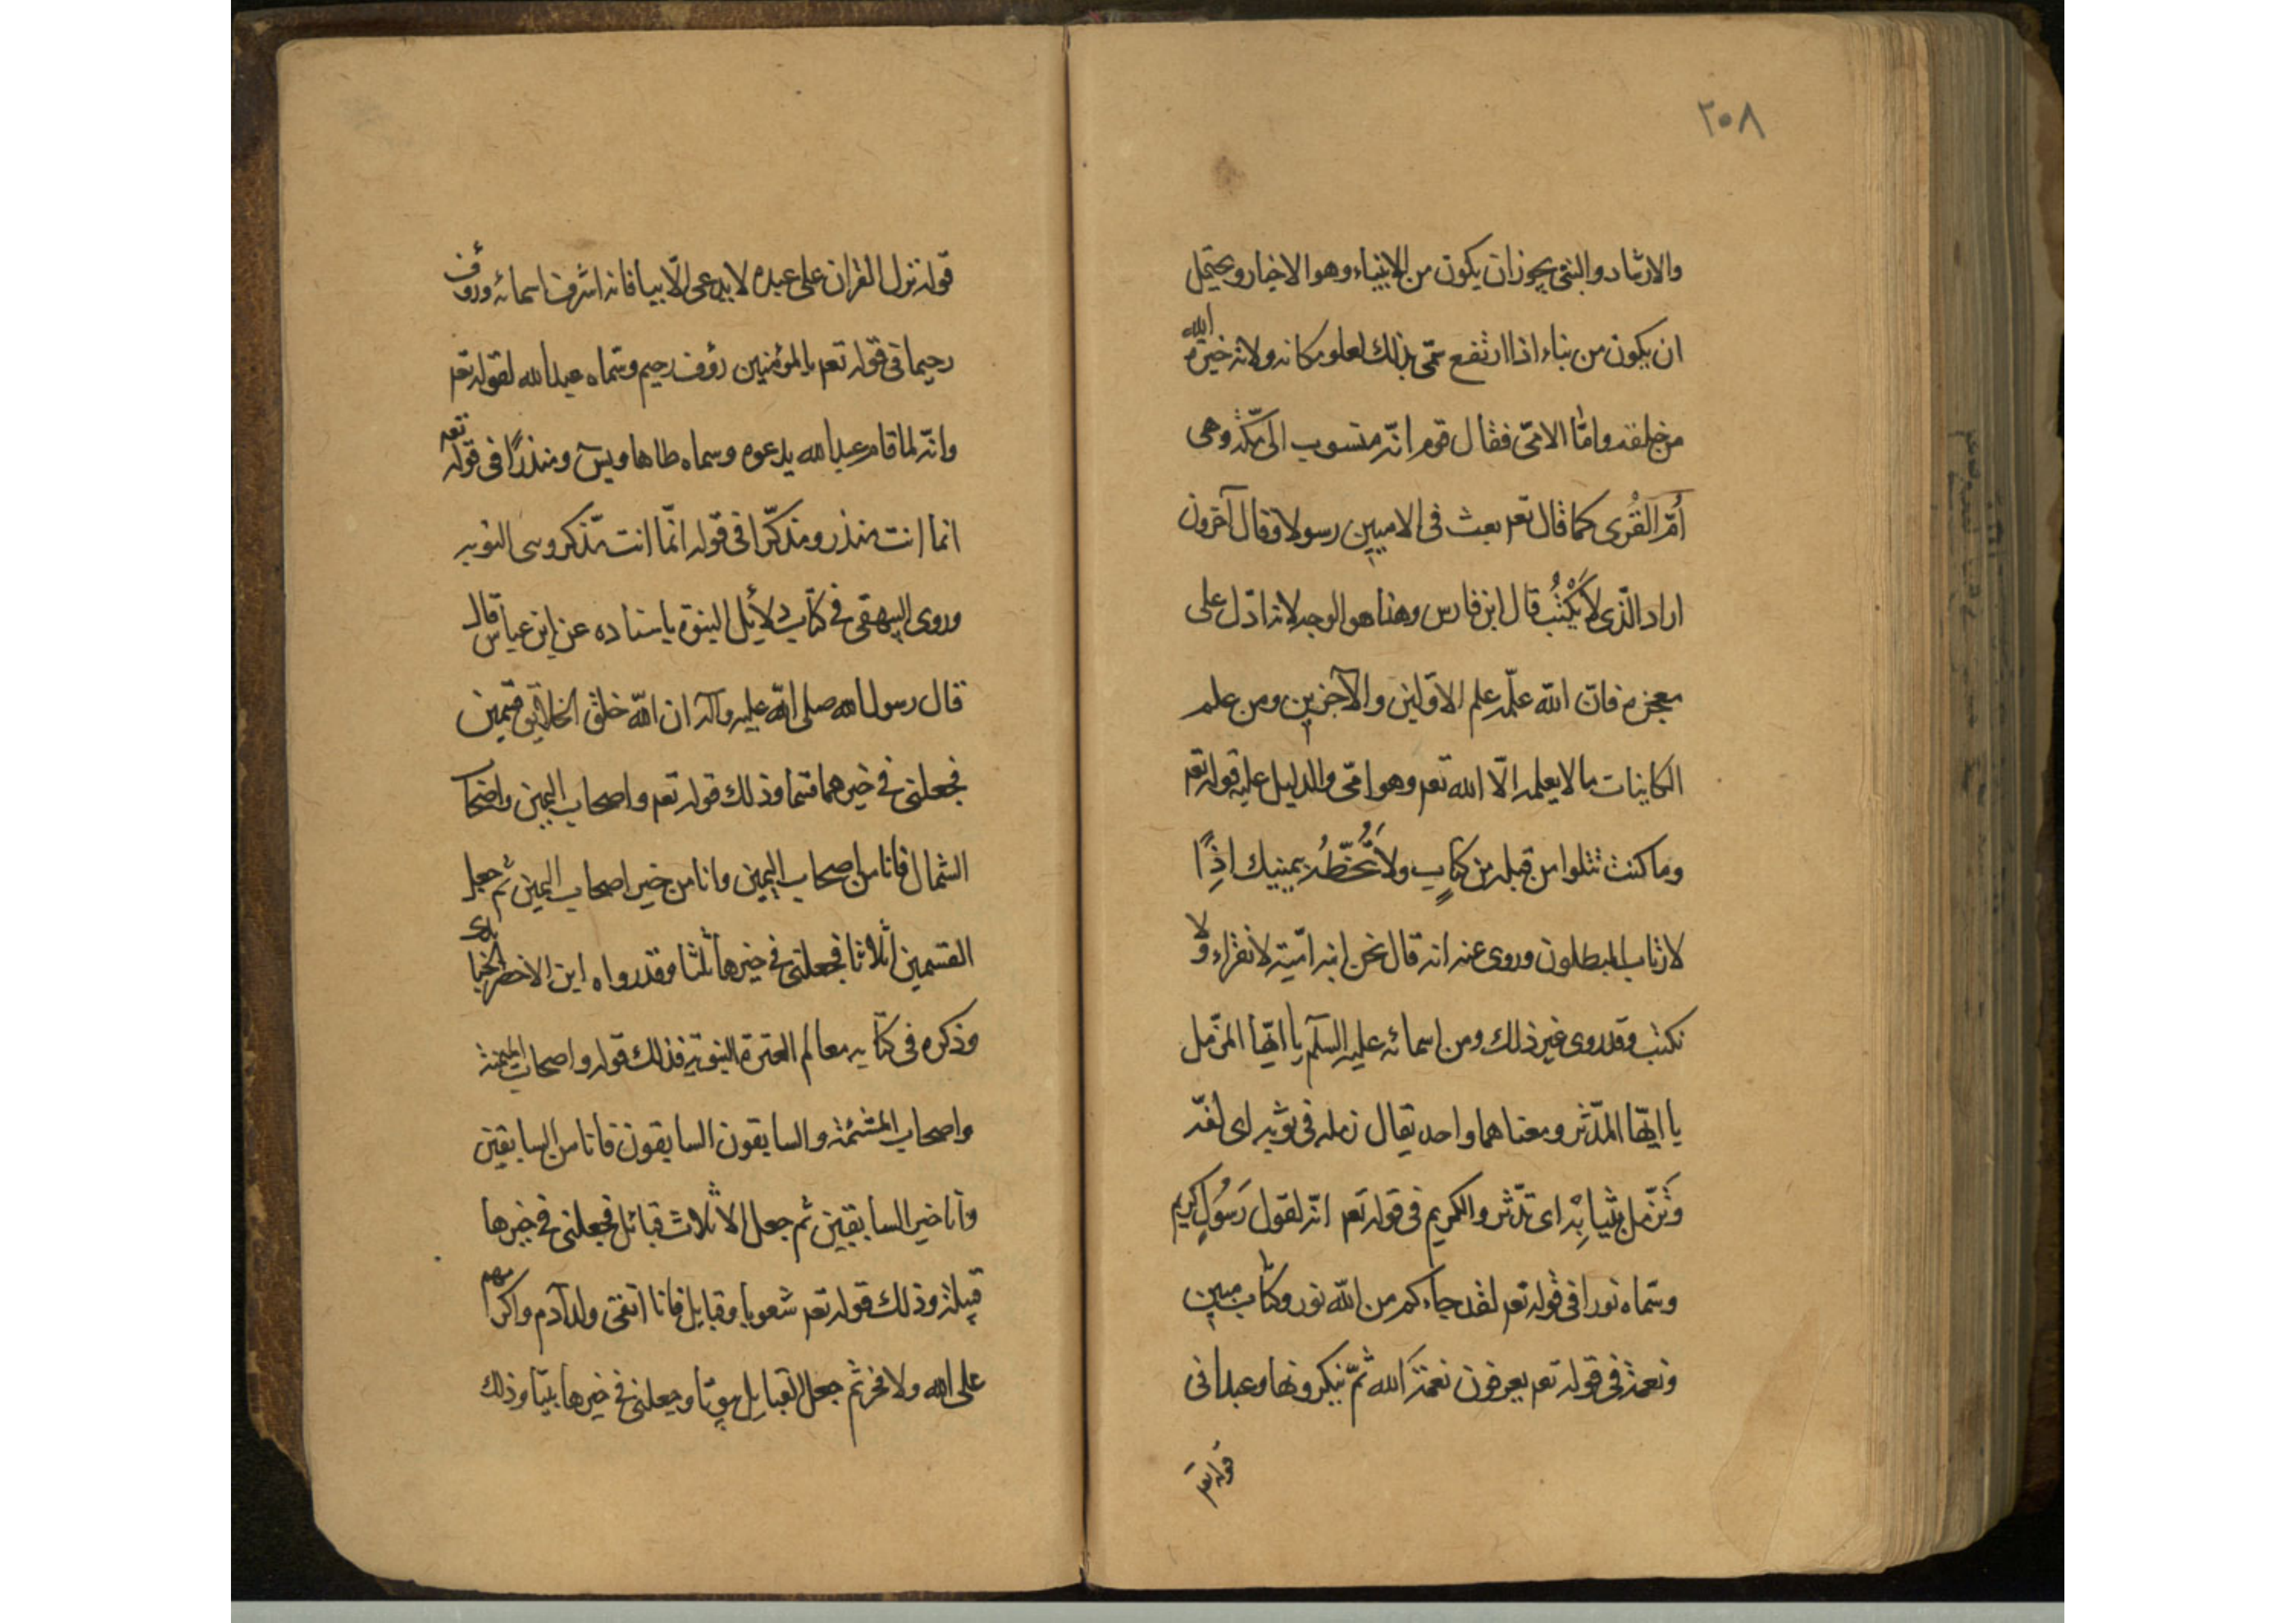 ٢٠٨
والارشاد والنبی یجوز ان یکون من الانبیاء وهو الاخبار ویحتمل
ان یکون من نباء اذا ارتفع سمّی بذلک لعلو مکانه ولانه خیرة الله
من خلقه وامّا الامّی فقال قوم انّه منسوب الی مکّة وهی
اُمّ القُری کما قال تعم بعث فی الامیین رسولا وقال آخرون
اراد الّذی لا یَکْتُبُ قال ابن فارس وهذا هو الوجه لانه ادّل علی
معجزه فان الله علّمه علم الاوّلین والآخرین ومن علم
الکاینات ما لا یعلمه الّا الله تعم وهو امّی والدلیل علیه قوله تعم
وما کنت تتلوا من قبله من کتابٍ ولا تَخُطّهُ بیمینک اذًِا
لارتاب المبطلون وروی عنه انه قال نحن امّیة لا نقراء ولا
نکتب وقد روی غیر ذلک ومن اسمائه علیه السلٓم یا ایّها المزّمل
یا ایّها المدّثر ومعناهما واحد یقال زمله فی ثوبه ای لفّه
وَتزّمل بثیابِهْ ای تدّثر والکریم فی قوله تعم انّه لقول رَسُولٍ کریم
وسمّاه نورا فی قوله تعم لقد جاءکم من الله نور وکتاب مبین
ونعمة فی قوله تعم یعرفون نعمَة الله ثمّ ینکرونها وعبدا فی
قوله تعم
قوله نزل القران علی عبده لا یدعی الّا بیا فانه اشرف اسمائه ورؤف
رحیما فی قوله تعم بالمؤمنین رؤف رحیم وسمّاه عبد الله لقوله تعم
وانّه لما قام عبد الله یدعوه وسماه طاها ویسٓ ومنذرًا فی قوله تعم
انما انت منذر ومذکّرا فی قوله انّما انت مّذکر ونبی التوبه
وروی البیهقی فی کتاب دلائل النبوة باسناده عن ابن عباس قال
قال رسول الله صلی الله علیه وآله ان الله خلق الخلایق قسمین
فجعلنی فی خیرهما قسما وذلک قوله تعم واصحاب الیمین واصحاب
الشمال فانا من اصحاب الیمین وانا من خیر اصحاب الیمین ثم جعل
القسمین اثلاثا فجعلنی فی خیرها ثلثا وقد رواه ابن الاخضر
وذکره فی کتابه معالم العترة النبویة فذلک قوله واصحاب المیمنة
واصحاب المشئمة والسابقون السابقون فانا من السابقین
وانا خیر السابقین ثم جعل الاثلاث قبائل فجعلنی فی خیرها
قبیلة وذلک قوله تعم شعوبا وقبایل فانا اتقی ولد آدم واکرمهم
علی الله ولا فخر ثم جعل القبایل بیوتا وجعلنی فی خیرها بیتا وذلک